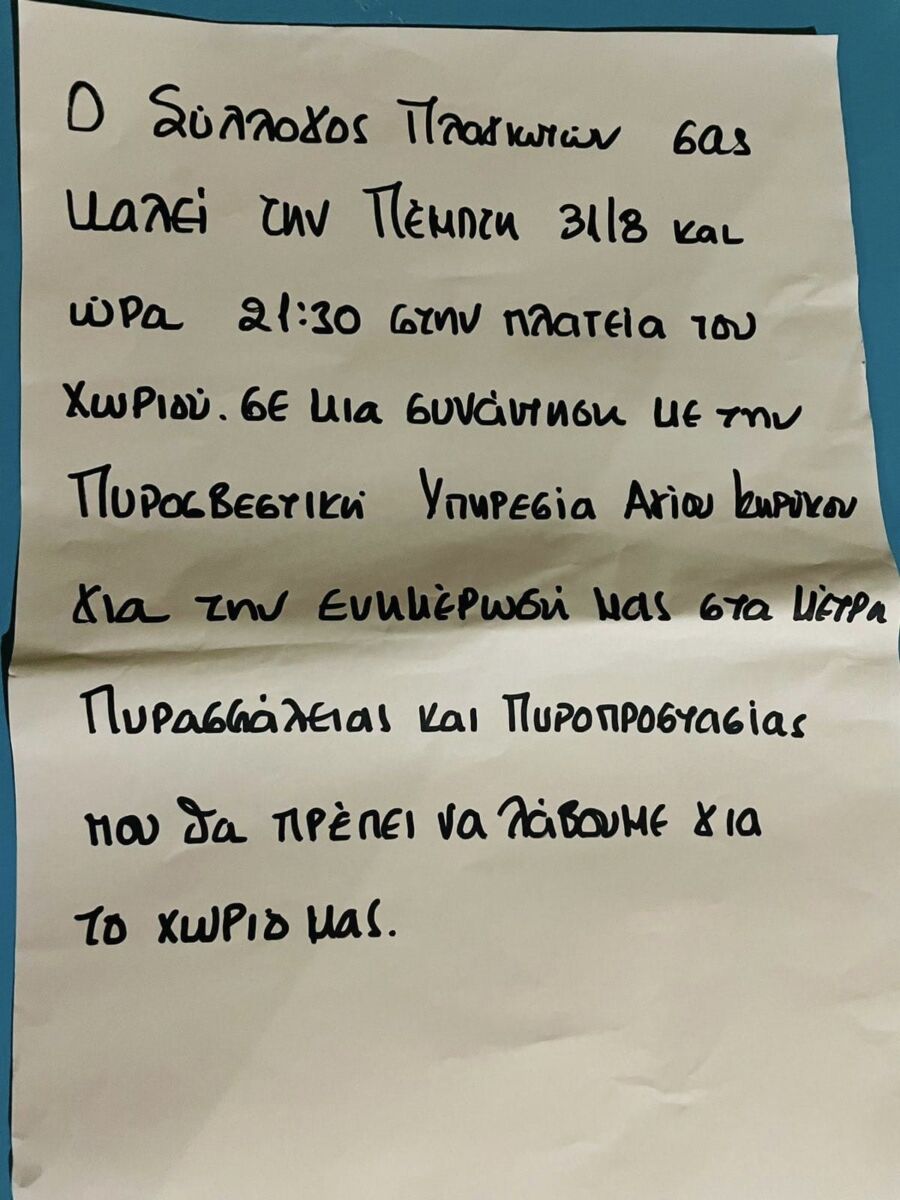 Ο Σύλλογος Πλαγιωτών σας
καλεί την Πέμπτη 31/8 και
ώρα 21:30 στην πλατεία του
χωριού. σε μια συνάντηση με την
Πυροσβεστική Υπηρεσία Αγίου Κηρύκου
για την ενημέρωσή μας στα μέτρα
Πυρασφάλειας και Πυροπροστασίας
που θα πρέπει να λάβουμε για
το χωριό μας.